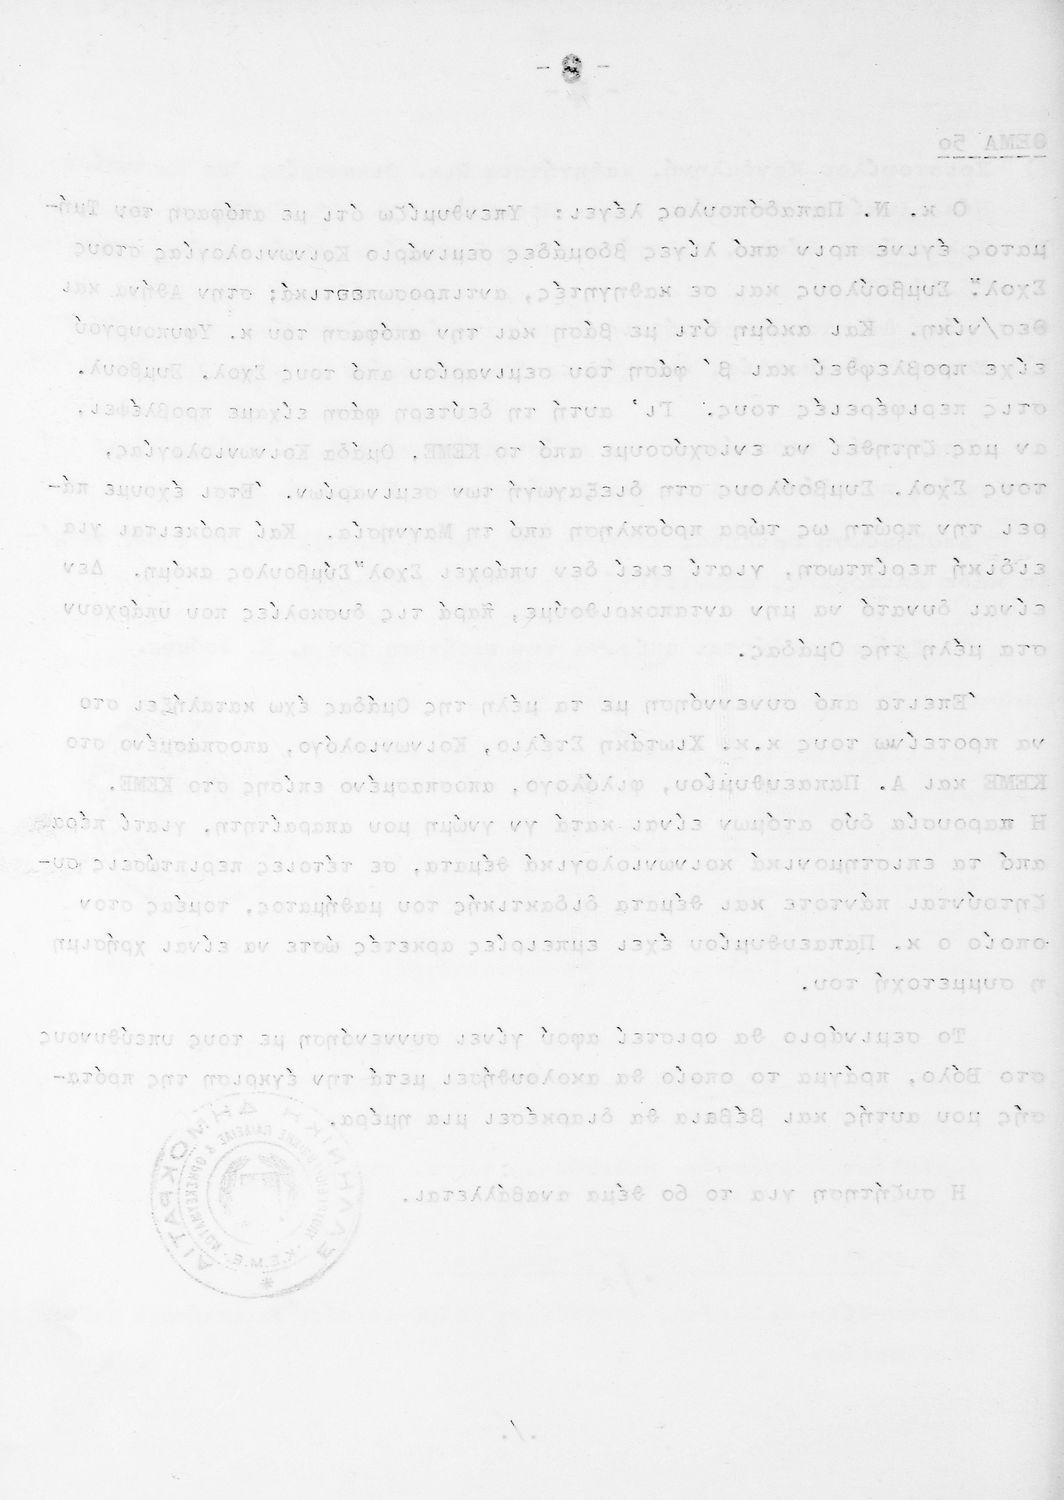 ΘΕΜΑ 5ο
Ο κ. Ν. Παπαδόπουλος λέγει: Υπενθυμίζω ότι με απόφαση του Τμή-
ματος έγινε πριν από λίγες βδομάδες σεμινάριο Κοινωνιολογίας στους
Σχολ. Συμβούλους και σε καθηγητές, αντιπροσωπευτικά; στην Αθήνα και
Θεσ/νίκη. Και ακόμη ότι με βάση και την απόφαση του κ. Υφυπουργού
είχε προβλεφθεί και β΄ φάση του σεμιναρίου από τους Σχολ. Συμβουλ.
στις περιφέρειές τους. Γι' αυτή τη δεύτερη φάση είχαμε προβλέψει,
αν μας ζητηθεί να ενισχύσουμε από το ΚΕΜΕ, Ομάδα Κοινωνιολογίας,
τους Σχολ. Συμβούλους στη διεξαγωγή των σεμιναρίων. Έτσι έχουμε πά-
ρει την πρώτη ως τώρα πρόσκληση από τη Μαγνησία. Καί πρόκειται για
ειδική περίπτωση, γιατί εκεί δεν υπάρχει Σχολ. Σύμβουλος ακόμη. Δεν
είναι δυνατό να μην ανταποκριθούμε, παρά τις δυσκολίες που υπάρχουν
στα μέλη της Ομάδας.
Έπειτα από συνεννόηση με τα μέλη της Ομάδας έχω καταλήξει στο
να προτείνω τους κ.κ. Χιωτάκη Στέλιο, Κοινωνιολόγο, αποσπασμένο στο
ΚΕΜΕ και Α. Παπαευθυμίου, φιλόλογο, αποσπασμένο επίσης στο ΚΕΜΕ.
Η παρουσία δύο ατόμων είναι κατά γν γνώμη μου απαραίτητη, γιατί πέρα
από τα επιστημονικά κοινωνιολογικά θέματα, σε τέτοιες περιπτώσεις συ-
ζητούνται πάντοτε και θέματα διδακτικής του μαθήματος, τομέας στον
οποίο ο κ. Παπαευθυμίου έχει εμπειρίες αρκετές ώστε να είναι χρήσιμη
η συμμετοχή του.
Το σεμινάριο θα οριστεί αφού γίνει συννενόηση με τους υπεύθυνους
στο Βόλο, πράγμα το οποίο θα ακολουθήσει μετά την έγκριση της πρότα-
σής μου αυτής και βέβαια θα διαρκέσει μια ημέρα.
Η συζήτηση για το 6ο θέμα αναβάλλεται.
ΕΛΛΗΝΙΚΗ ΔΗΜΟΚΡΑΤΙΑ
Κ.Ε.Μ.Ε.
./.